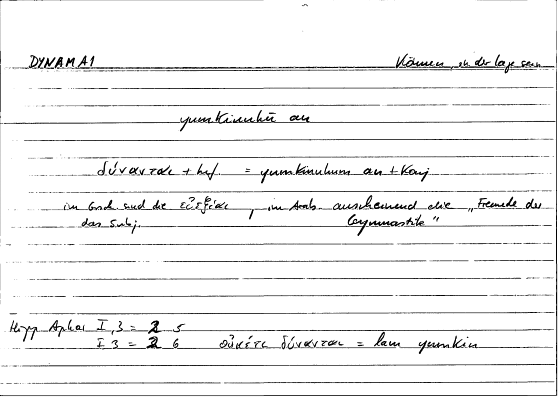 DYNAMAI Können, in der Lage sein
yumkinuhū an
δύνανται + Inf. = yumkinuhum an + Konj
im Griech. sind die εὐεξίαι, im Arab. anscheinend die „Freunde der
das Subj. Gymnastik"
Hipp Aphor I, 3 = 2 5
I 3 = 2 6 οὐκέτι δύνανται = lam yumkin